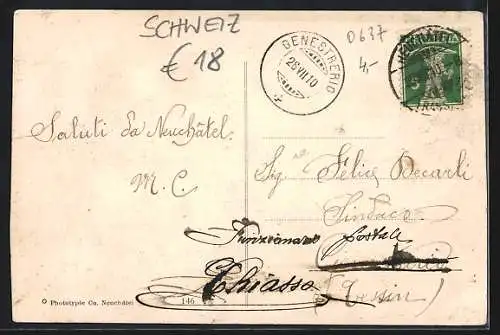 SCHWEIZ
€ 18
D637
4,-
GENESTRERIO
28 VII 10
Saluti da Neuchâtel.
M. C.
Sig. Felice Beccarli
Sindaco
postale
Chiasso
(Tessin)
Phototypie Co. Neuchâtel
146